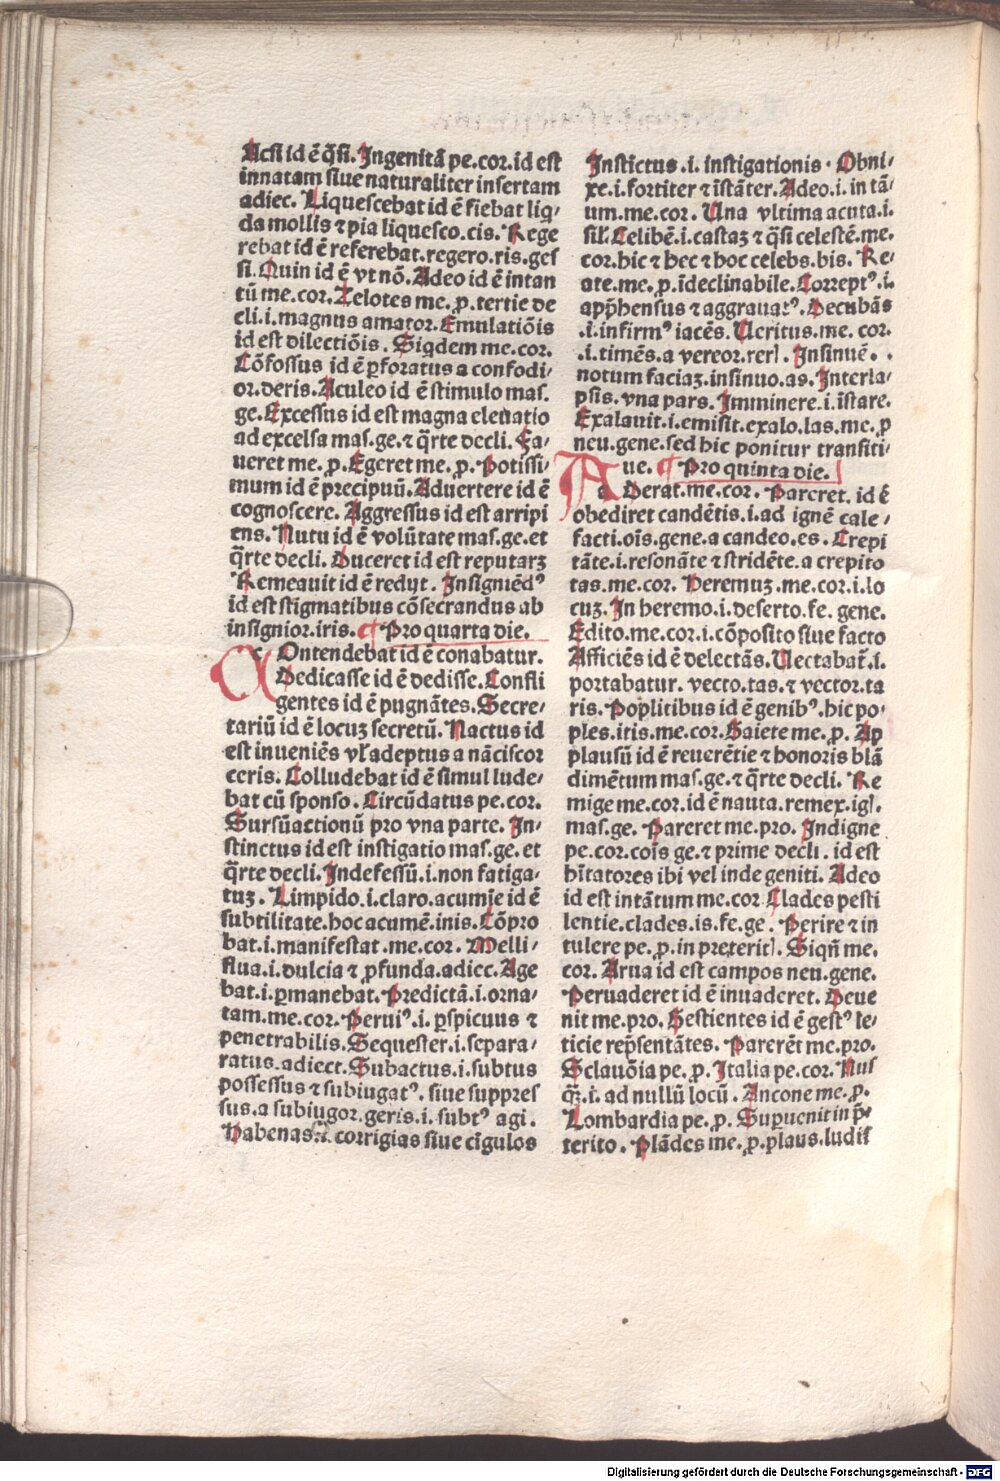 Acsi id ē q̄si. Ingenitā pe. cor. id est
innatam siue naturaliter insertam
adiec. Liquescebat id ē fiebat liq̄⸗
da mollis ⁊ pia liquesco.cis. Rege
rebat id ē referebat.regero.ris.gef
si. Quin id ē vt nō. Adeo id ē intan
tū me.cor. Zelotes me. p. tertie de
cli.i. magnus amator. Emulatiōis
id est dilectiōis. Siqdem me.cor.
Cōfossus id ē ꝑforatus a confodi⸗
or.deris. Aculeo id ē stimulo mas.
ge. Excessus id est magna eleuatio
ad excelsa mas.ge. ⁊ q̄rte decli. Fa⸗
ueret me. p. Egeret me. p. Potissi⸗
mum id ē precipuū. Aduertere id ē
cognoscere. Aggressus id est arripi
ens. Nutu id ē volūtate mas.ge.et
q̄rte decli. Duceret id est reputarꝫ
Remeauit id ē redijt. Insigniēdꝰ
id est stigmatibus cōsecrandus ab
insignior.iris. ¶ Pro quarta die.
c Ontendebat id ē conabatur.
Dedicasse id ē dedisse. Confli
gentes id ē pugnātes. Secre⸗
tariū id ē locuꝫ secretū. Nactus id
est inueniēs vl̓ adeptus a nāciscor
ceris. Colludebat id ē simul lude⸗
bat cū sponso. Circūdatus pe.cor.
Sursūactionū pro vna parte. In⸗
stinctus id est instigatio mas.ge. et
q̄rte decli. Indefessū.i.non fatiga⸗
tuꝫ. Limpido.i.claro.acumīe id ē
subtilitate.hoc acumē.inis. Cōpro
bat.i.manifestat.me.cor. Melli⸗
flua.i.dulcia ⁊ ꝓfunda.adiec. Age
bat.i.ꝑmanebat. Predictā.i.orna⸗
tam.me.cor. Peruiꝰ.i.ꝑspicuus ⁊
penetrabilis. Sequester.i.separa⸗
ratus.adiect. Subactus.i.subtus
possessus ⁊ subiugatꝰ. siue suppres
sus.a subiugor.geris.i.subtꝰ agi.
Habenas.i. corrigias siue cīgulos
Instictus.i. instigationis. Obni⸗
xe.i.fortiter ⁊ īstāter. Adeo.i. in tā⸗
tum.me.cor. Una vltima acuta.i.
sil̓. Celibē.i.castaꝫ ⁊ q̄si celestē.me.
cor.hic ⁊ hec ⁊ hoc celebs.bis. Re⸗
ate.me. p. īdeclinabile. Correptꝰ.i.
app̄hensus ⁊ aggrauatꝰ. Decubās
.i.infirmꝰ iacēs. Ueritus.me. cor.
.i.timēs.a vereor.reri. Insinuē. .
notum faciaꝫ.insinuo.as. Interla⸗
psis.vna pars. Imminere.i.īstare.
Exalauit.i.emisit.exalo.las.me. p
neu.gene.sed hic ponitur transiti⸗
ue. ¶ Pro quinta die.
a Derat.me.cor. Parcret. id ē
obediret candētis.i.ad ignē cale⸗
facti.oīs.gene.a candeo.es. Crepi
tāte.i.resonāte ⁊ stridēte.a crepito
tas.me.cor. Veremuꝫ.me.cor.i.lo
cuꝫ. In heremo.i.deserto.fe. gene.
Edito.me.cor.i.cōposito siue facto
Afficiēs id ē delectās. Uectabat̄.i.
portabatur. vecto.tas. ⁊ vector.ta
ris. Poplitibus id ē genibꝰ.hic po⸗
ples.itis.me.cor. Gaiete me. p. Ap
plausū id ē reuerētie ⁊ honoris blā
dimētum mas.ge. ⁊ q̄rte decli. Re
mige me.cor.id ē nauta.remex.igi.
mas.ge. Pareret me.pro. Indigne
pe.cor.coīs ge. ⁊ prime decli. id est
hītatores ibi vel inde geniti. Adeo
id est intātum me.cor Clades pesti
lentie.clades.is.fe.ge. Perire ⁊ in
tulere pe. p. in preterit̄. Siqn̄ me.
cor. Arua id est campos neu.gene.
Peruaderet id ē inuaderet. Deue
nit me.pro. Gestientes id ē gestꝰ le⸗
ticie rep̄sentātes. Parerēt me.pro.
Sclauōia pe. p. Italia pe.cor. Nus
qꝫ.i. ad nullū locū. Ancone me. p.
Lombardia pe. p. Suꝑuenit in p̄⸗
terito. Plādes me. p. plaus.ludis
Digitalisierung gefördert durch die Deutsche Forschungsgemeinschaft - DFG